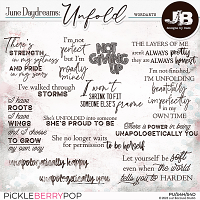 June Daydreams:
Unfold
WORDARTS
JB
There's
STRENGTH
in my softness
AND PRIDE
in my years
I'm not
perfect
but I'm
proudly
mine!
NOT
GIVING
UP
THE LAYERS OF ME
aren't always pretty
but they are
ALWAYS HONEST
I've walked through
STORMS
I won't
SHRINK TO FIT
SOMEONE ELSE'S frame
I'm not finished,
I'M UNFOLDING
beautifully
imperfectly
in my
OWN TIME
I have
ROOTS
I have
WINGS
and I choose
TO GROW
my own way
She's UNFOLDED into someone
SHE'S PROUD TO BE
There's POWER in being
UNAPOLOGETICALLY YOU
She no longer waits
for permission to be herself
unapologetically happy
unapologetically me
Let yourself be soft
even when the world
tells you to HARDEN
PICKLEBERRYPOP